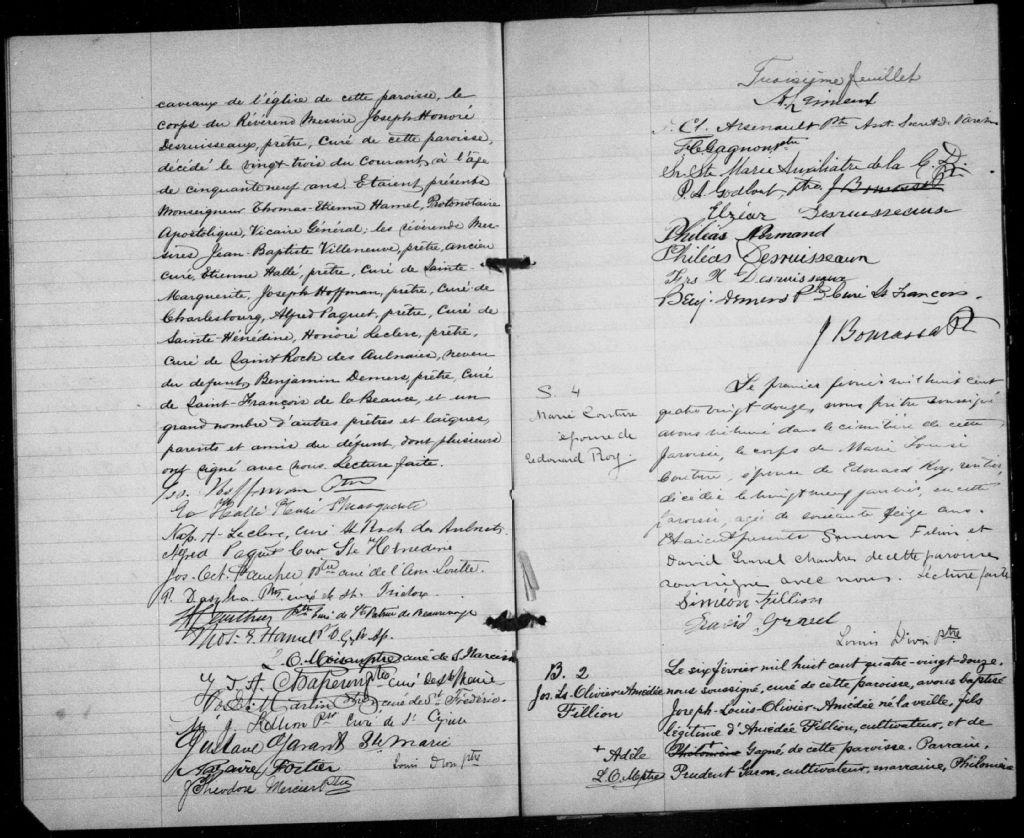 caveaux de l'église de cette paroisse, le
corps du Révérend Messire Joseph-Honoré
Desruisseaux, prêtre, Curé de cette paroisse,
décédé le vingt-trois du courant, à l'âge
de cinquante neuf ans. Etaient présents
Monseigneur Thomas-Etienne Hamel, Protonotaire
Apostolique, Vicaire Général; les révérends Mes-
sires Jean-Baptiste Villeneuve, prêtre, ancien
curé, Etienne Hallé, prêtre, Curé de Sainte-
Marguerite, Joseph Hoffman, prêtre, Curé de
Charlesbourg, Alfred Paquet, prêtre, Curé de
Sainte-Hénédine, Honoré Leclerc, prêtre,
curé de Saint Roch des Aulnaies, neveu
du defunt, Benjamin Demers, prêtre, Curé
de Saint-François de la Beauce, et un
grand nombre d'autres prêtres et laïques,
parents et amis du défunt, dont plusieurs
ont signé avec nous. Lecture faite.
Jos. Hoffman Ptre
Hallé Curé Ste Marguerite
Nap. H. Leclerc, curé St Roch des Aulnets.
Alfred Paquet Curé Ste Hénédine
Jos. Oct. Faucher, Ptre curé de
P. Ptre, curé de St. Isidore
Ptre Curé de St Patrice de Beaurivage
Thos. E. Hamel
L. O. ptre curé de S. Narcisse
J. T. A. Chaperon ptre curé de Ste Marie
Martin Ptre curé de St Frédéric
J. Ptre Curé de St Cyrille
Gustave Garant Ste Marie
Nazaire Fortier Louis Dion ptre
J. Théodore Mercier ptre
Troisième feuillet
A. Lemieux
Arsenault Ptre
F. C. Gagnon, ptre
Sr Ste Marie Auxiliatre de la C. D.
P. A. Godbout, ptre J Bourassa
Elzéar Desruisseaux
Philéas Normand
Philéas Desruisseaux
Frs X Desruisseaux
Benj. Demers Ptre Curé St François.
J Bourassa Ptre
S. 4
Marie Couture
épouse de
Edouard Roy.
Le premier fevrier mil huit cent
quatre vingt-douze, nous prêtre soussigné
avons inhumé dans le cimitière de cette
paroisse, le corps de Marie Louise
Couture, épouse de Edouard Roy, rentier,
décédée le vingt neuf janvier, en cette
paroisse, agée de soixante seize ans.
Etaient présents Siméon Filion et
David Gravel chantres de cette paroisse
soussignés avec nous. Lecture faite
Siméon Fillion
David Gravel
Louis Dion ptre
B. 2
Jos. Ls-Olivier-Amédée
Fillion
Le six février mil huit cent quatre-vingt-douze,
nous soussigné, curé de cette paroisse, avons baptisé
Joseph-Louis-Olivier-Amédée né la veille, fils
légitime d'Amédée Fillion, cultivateur, et de
Philomène Gagné de cette paroisse. Parrain,
Prudent Garon, cultivateur, marraine, Philomène
+ Adèle
L. O. M ptre